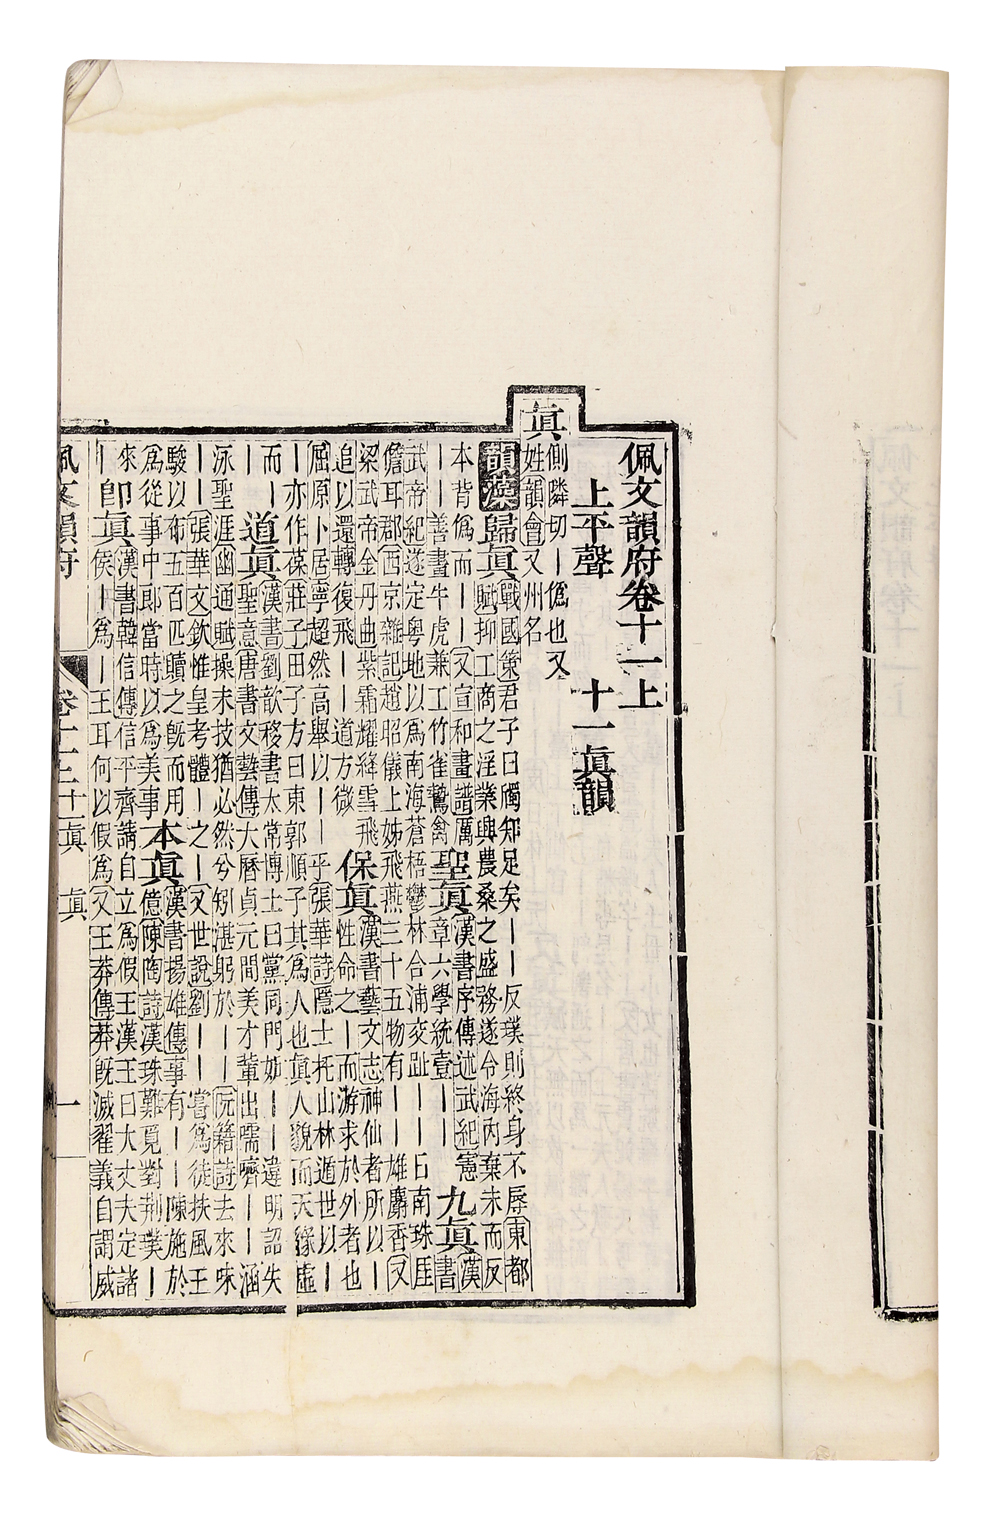 佩文韻府卷十一上
上平聲 十一眞韻
眞
側鄰切｜僞也又
姓韻會又州名
韻藻 歸眞 戰國策君子曰斶知足矣｜｜反璞則終身不辱東都
賦抑工商之淫業興農桑之盛務遂令海內棄末而反
本背僞而｜｜又宣和畫譜厲
｜｜善畫牛虎兼工竹雀鷙禽
聖眞 漢書序傳述武紀憲
章六學統壹｜｜
九眞 漢
書
武帝紀遂定粵地以爲南海蒼梧鬱林合浦交趾｜｜日南珠崖
儋耳郡西京雜記趙昭儀上姊飛燕三十五物有｜｜雄麝香又
梁武帝金丹曲紫霜耀絳雪飛
追以還轉復飛｜｜道方微
保眞 漢書藝文志神仙者所以｜
性命之｜而游求於外者也
屈原卜居寧超然高舉以｜｜乎張華詩隱士托山林遁世以｜
｜亦作葆莊子田子方曰東郭順子其爲人也眞人貌而天緣虛
而｜
｜
道眞 漢書劉歆移書太常博士曰黨同門妬｜｜違明詔失
聖意唐書文藝傳大曆貞元間美才輩出嚅嚌｜｜涵
泳聖涯幽通賦操末技猶必然兮矧湛躬於｜｜阮籍詩去來味
｜｜張華文欽惟皇考體｜之｜又世說劉｜｜嘗爲徒扶風王
駿以布五百匹贖之旣而用
爲從事中郎當時以爲美事
本眞 漢書揚雄傳事有｜｜陳施於
億陳陶詩漢珠難覓對荆璞｜
來
｜
卽眞 漢書韓信傳信平齊請自立爲假王漢王曰大丈夫定諸
侯｜爲｜王耳何以假爲又王莽傳莽旣滅翟義自謂威
佩文韻府 卷十一上十一眞 眞 一